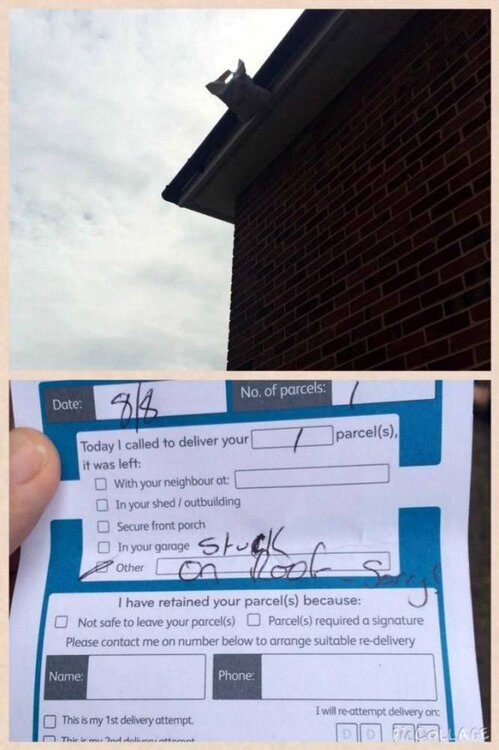 Date: 8/8 No. of parcels: 1
Today I called to deliver your 1 parcel(s),
it was left:
With your neighbour at:
In your shed / outbuilding
Secure front porch
In your garage stuck
Other on Roof - Sorry!
I have retained your parcel(s) because:
Not safe to leave your parcel(s) Parcel(s) required a signature
Please contact me on number below to arrange suitable re-delivery
Name: Phone:
I will re-attempt delivery on:
This is my 1st delivery attempt.
D D
This is my 2nd delivery attempt